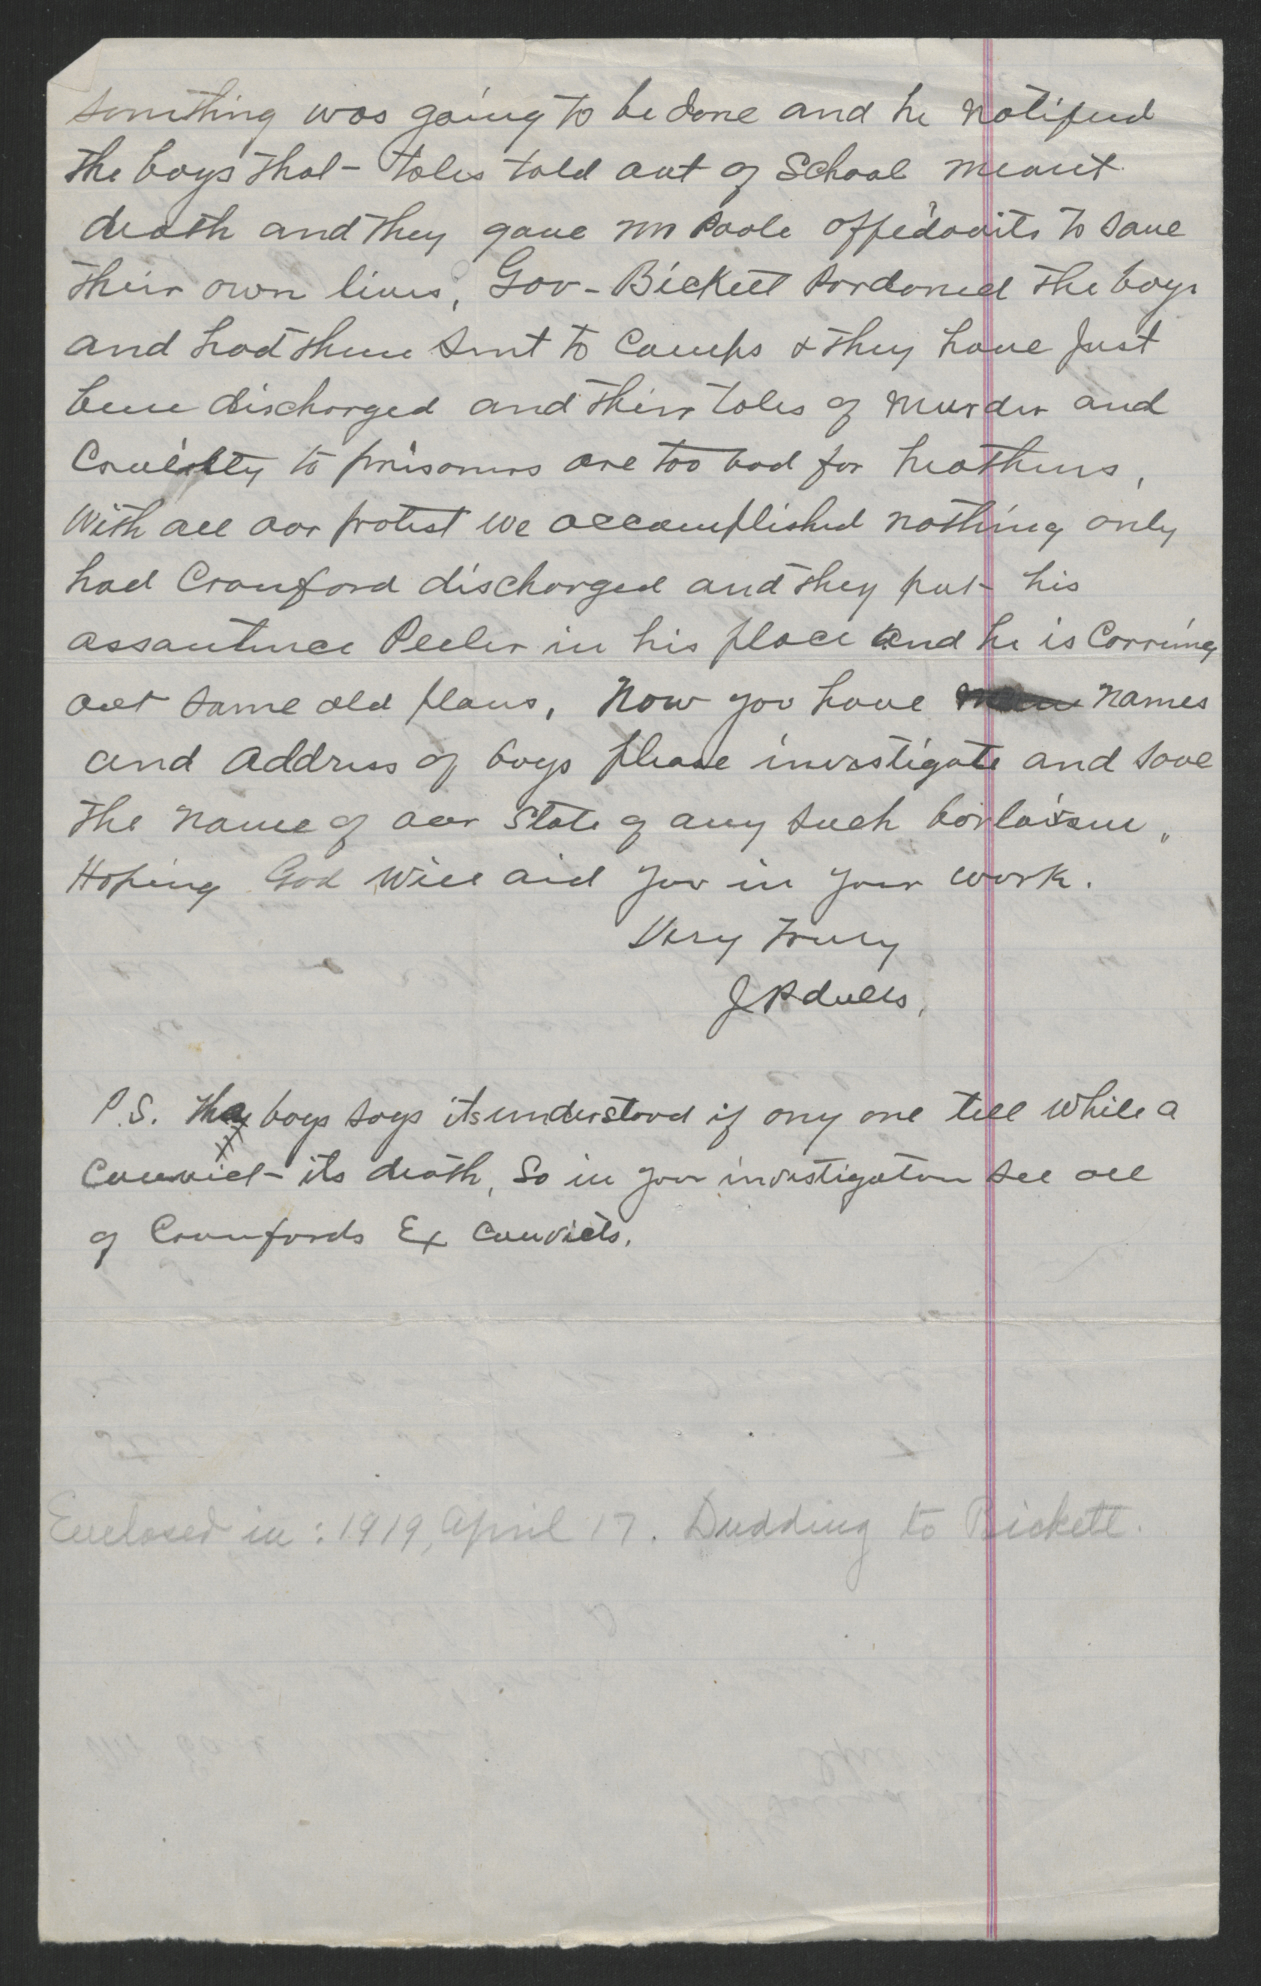 something was going to be done and he notified
the boys that - tales told out of School meant
death and they gave Mr Poole affidavits to save
their own lives, Gov - Bickett Pardoned the boys
and had them sent to Camps & they have Just
been discharged and their tales of Murder and
to prisoners are too bad for heathens,
With all our protest we accomplished nothing only
had Cranford discharged and they put his
Peeler in his place and he is Carring
out same old plans, Now you have names
and address of boys please investigate and save
the name of our State of any such
Hoping God will aid you in your work.
Very Truly
J P
P.S. The boys says its understood if any one tell while a
Convict - its death, So in your investigaton see all
of Cranfords Ex Convicts.
Enclosed in: 1919, April 17. Dudding to Bickett.